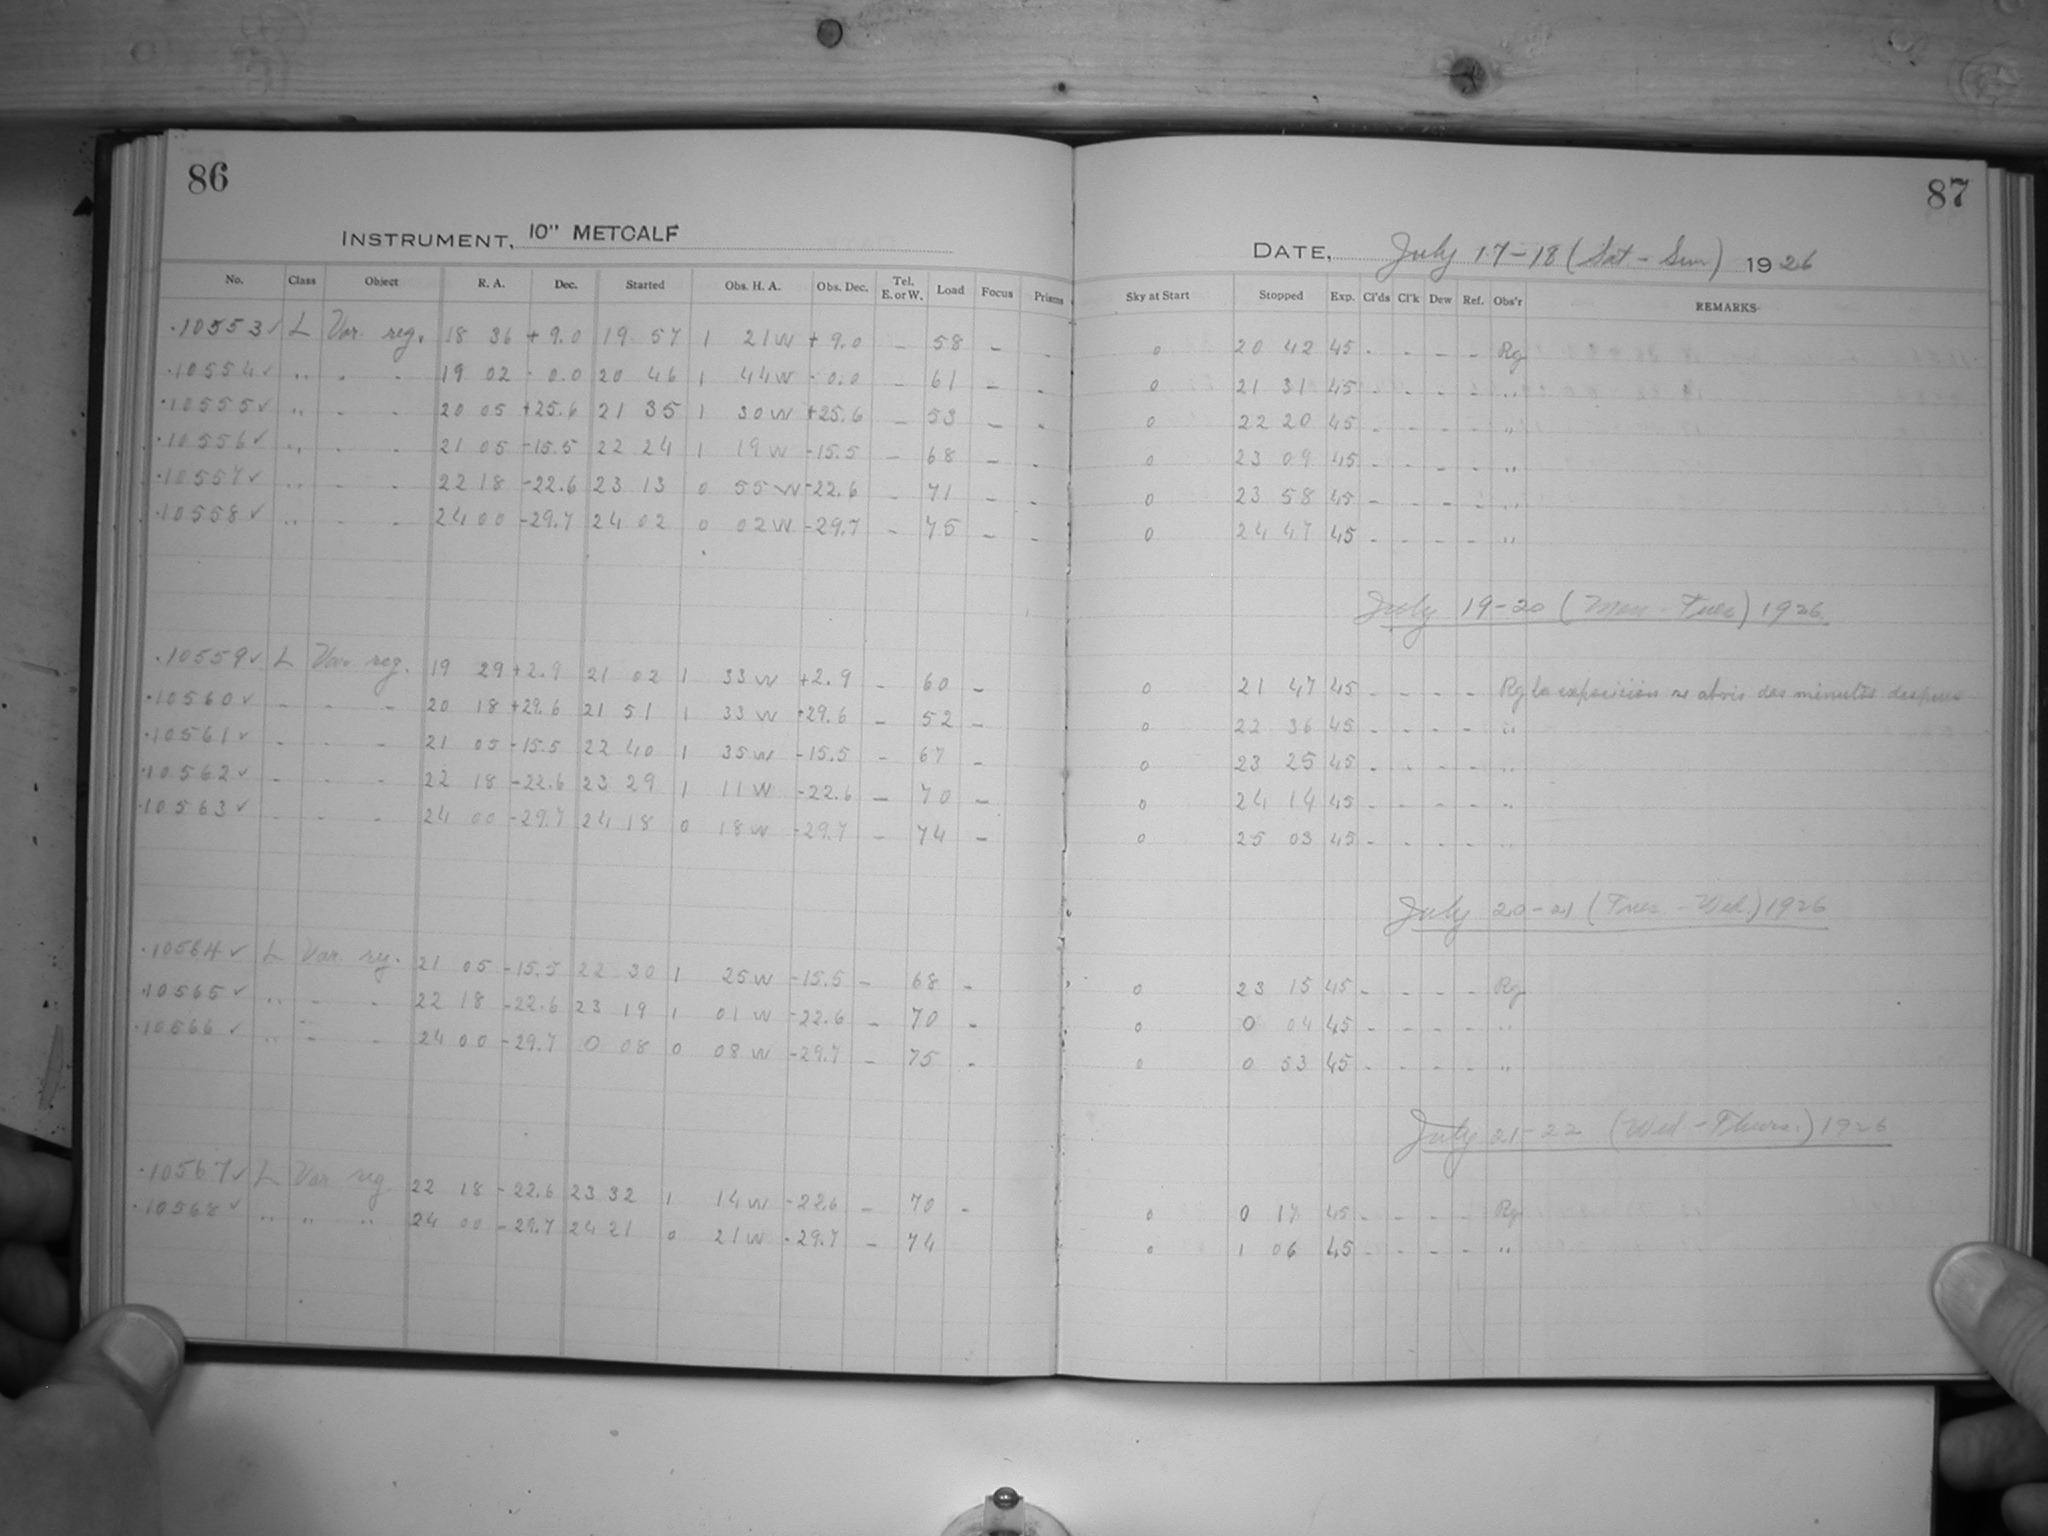 86
87
INSTRUMENT, 10" METCALF
DATE, July 17-18 (Sat - Sun) 1926
No. Class Object R. A. Dec. Started Obs. H. A. Obs. Dec. Tel. E. or W. Load Focus Prisms Sky at Start Stopped Exp. Cl'ds Cl'k Dew Ref. Obs'r REMARKS
.10553 ✓ L Var. reg. 18 36 + 9.0 19 57 1 21 W + 9.0 - 58 - - 0 20 42 45 - - - - Rg
.10554 ✓ " - - 19 02 - 0.0 20 46 1 44 W - 0.0 - 61 - - 0 21 31 45 - - - - "
.10555 ✓ " - - 20 05 +25.6 21 35 1 30 W +25.6 - 53 - - 0 22 20 45 - - - - "
.10556 ✓ " - - 21 05 -15.5 22 24 1 19 W -15.5 - 68 - - 0 23 09 45 - - - - "
.10557 ✓ " - - 22 18 -22.6 23 13 0 55 W -22.6 - 71 - - 0 23 58 45 - - - - "
.10558 ✓ " - - 24 00 -29.7 24 02 0 02 W -29.7 - 75 - - 0 24 47 45 - - - - "
July 19-20 (Mon - Tues) 1926
.10559 ✓ L Var reg. 19 29 +2.9 21 02 1 33 W +2.9 - 60 - 0 21 47 45 - - - - Rg la exposicion se abrio dos minutos despues
.10560 ✓ - - - 20 18 +29.6 21 51 1 33 W +29.6 - 52 - 0 22 36 45 - - - - "
.10561 ✓ - - - 21 05 -15.5 22 40 1 35 W -15.5 - 67 - 0 23 25 45 - - - - "
.10562 ✓ - - - 22 18 -22.6 23 29 1 11 W -22.6 - 70 - 0 24 14 45 - - - - "
.10563 ✓ - - - 24 00 -29.7 24 18 0 18 W -29.7 - 74 - 0 25 03 45 - - - - "
July 20-21 (Tues - Wed.) 1926
.10564 ✓ L Var. reg. 21 05 -15.5 22 30 1 25 W -15.5 - 68 - 0 23 15 45 - - - - Rg
.10565 ✓ " - - 22 18 -22.6 23 19 1 01 W -22.6 - 70 - 0 0 04 45 - - - - "
.10566 ✓ " - - 24 00 -29.7 0 08 0 08 W -29.7 - 75 - 0 0 53 45 - - - - "
July 21-22 (Wed - Thurs.) 1926
.10567 ✓ L Var reg. 22 18 -22.6 23 32 1 14 W -22.6 - 70 - 0 0 17 45 - - - - Rg
.10568 ✓ " " " 24 00 -29.7 24 21 0 21 W -29.7 - 74 0 1 06 45 - - - - "